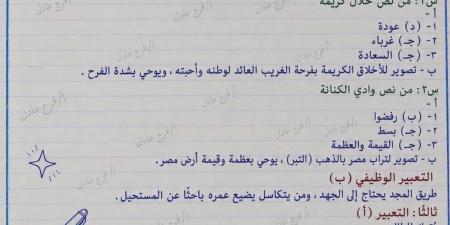 س١: من نص خلال كريمة
أ -
١- (د) عودة
٢- (جـ) غرباء
٣- (جـ) السعادة
ب - تصوير للأخلاق الكريمة بفرحة الغريب العائد لوطنه وأحبته ، ويوحي بشدة الفرح .
س٢: من نص وادي الكنانة
أ -
١- (ب) رفضوا
٢- (جـ) بسط
٣- (جـ) القيمة والعظمة
ب - تصوير لتراب مصر بالذهب (التبر) ، يوحي بعظمة وقيمة أرض مصر .
التعبير الوظيفي (ب)
طريق المجد يحتاج إلى الجهد ، ومن يتكاسل يضيع عمره باحثًا عن المستحيل.
ثالثًا: التعبير (أ)